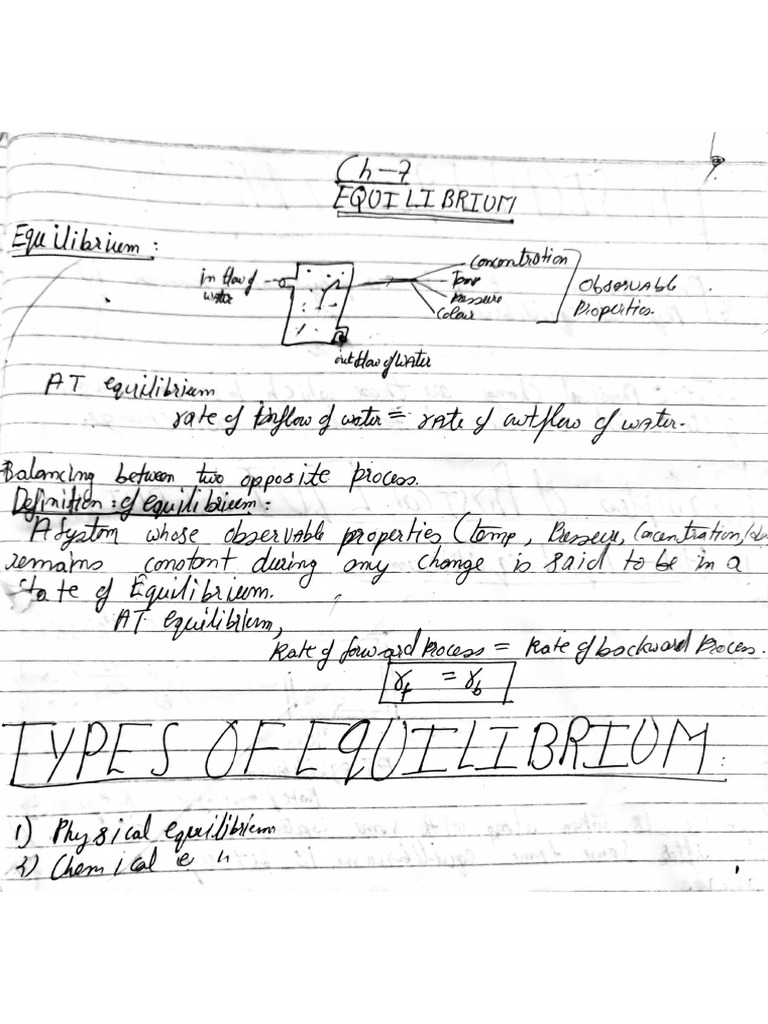 Ch-7
EQUILIBRIUM
Equilibrium:
in flow of
water
Concentration
Temp
Pressure
Colour
Observable
Properties.
out flow of water
AT equilibrium
rate of inflow of water = rate of outflow of water.
Balancing between two opposite process.
Definition: of equilibrium:
A System whose observable properties (temp, Pressure, Concentration,
remains constant during any change is said to be in a
State of Equilibrium.
AT equilibrium,
Rate of forward Process = Rate of backward Process.
r_f = r_b
TYPES OF EQUILIBRIUM:
1) Physical equilibrium
2) Chemical e "